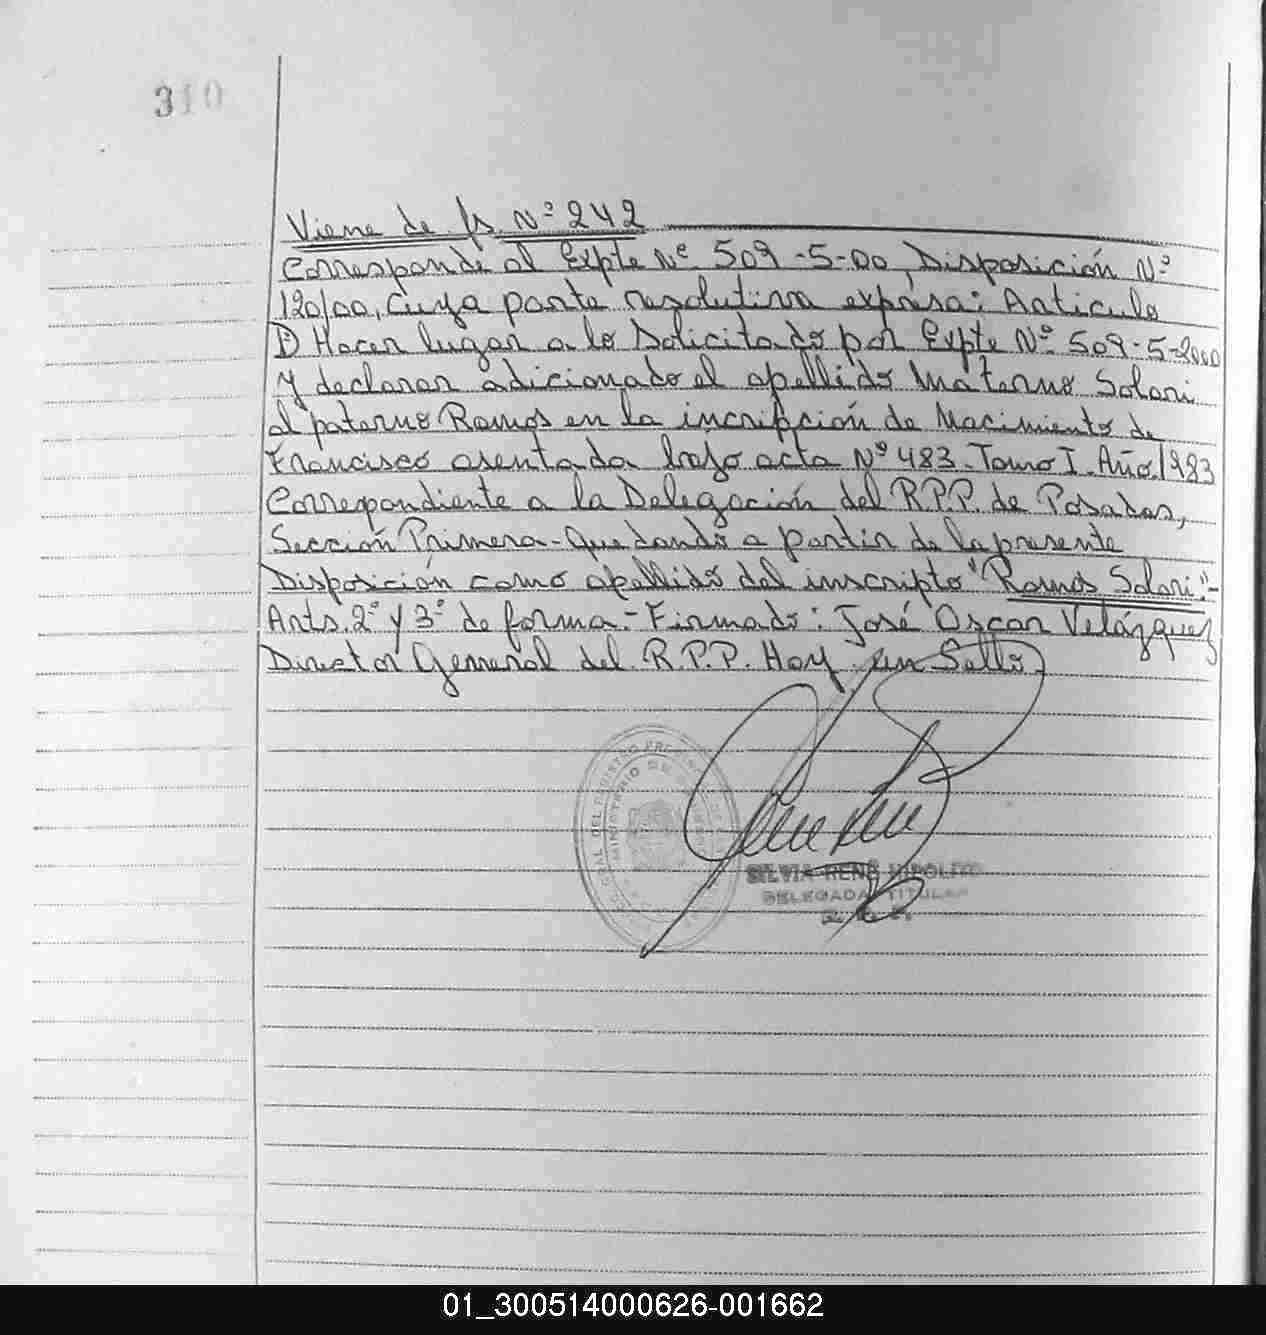 310
Viene de fs. Nº 242
Corresponde al Expte Nº 509-5-00, Disposición Nº
120/00, cuya parte resolutiva expresa: Articulo
1) Hacer lugar a lo Solicitado por Expte Nº 509-5-2000
y declarar adicionado el apellido Materno Solari
al paterno Ramos en la incripción de Nacimiento de
Francisco asentada bajo acta Nº 483-Tomo I-Año.1983
Correspondiente a la Delegación del R.P.P. de Posadas,
Sección Primera-Quedando a partir de la presente
Disposición como apellido del inscripto "Ramos Solari".-
Arts. 2º y 3º de forma.- Firmado: José Oscar Velázquez
Director General del R.P.P. Hay un Sello
SILVIA RENÉ HIPOLITO
DELEGADA TITULAR
01_300514000626-001662